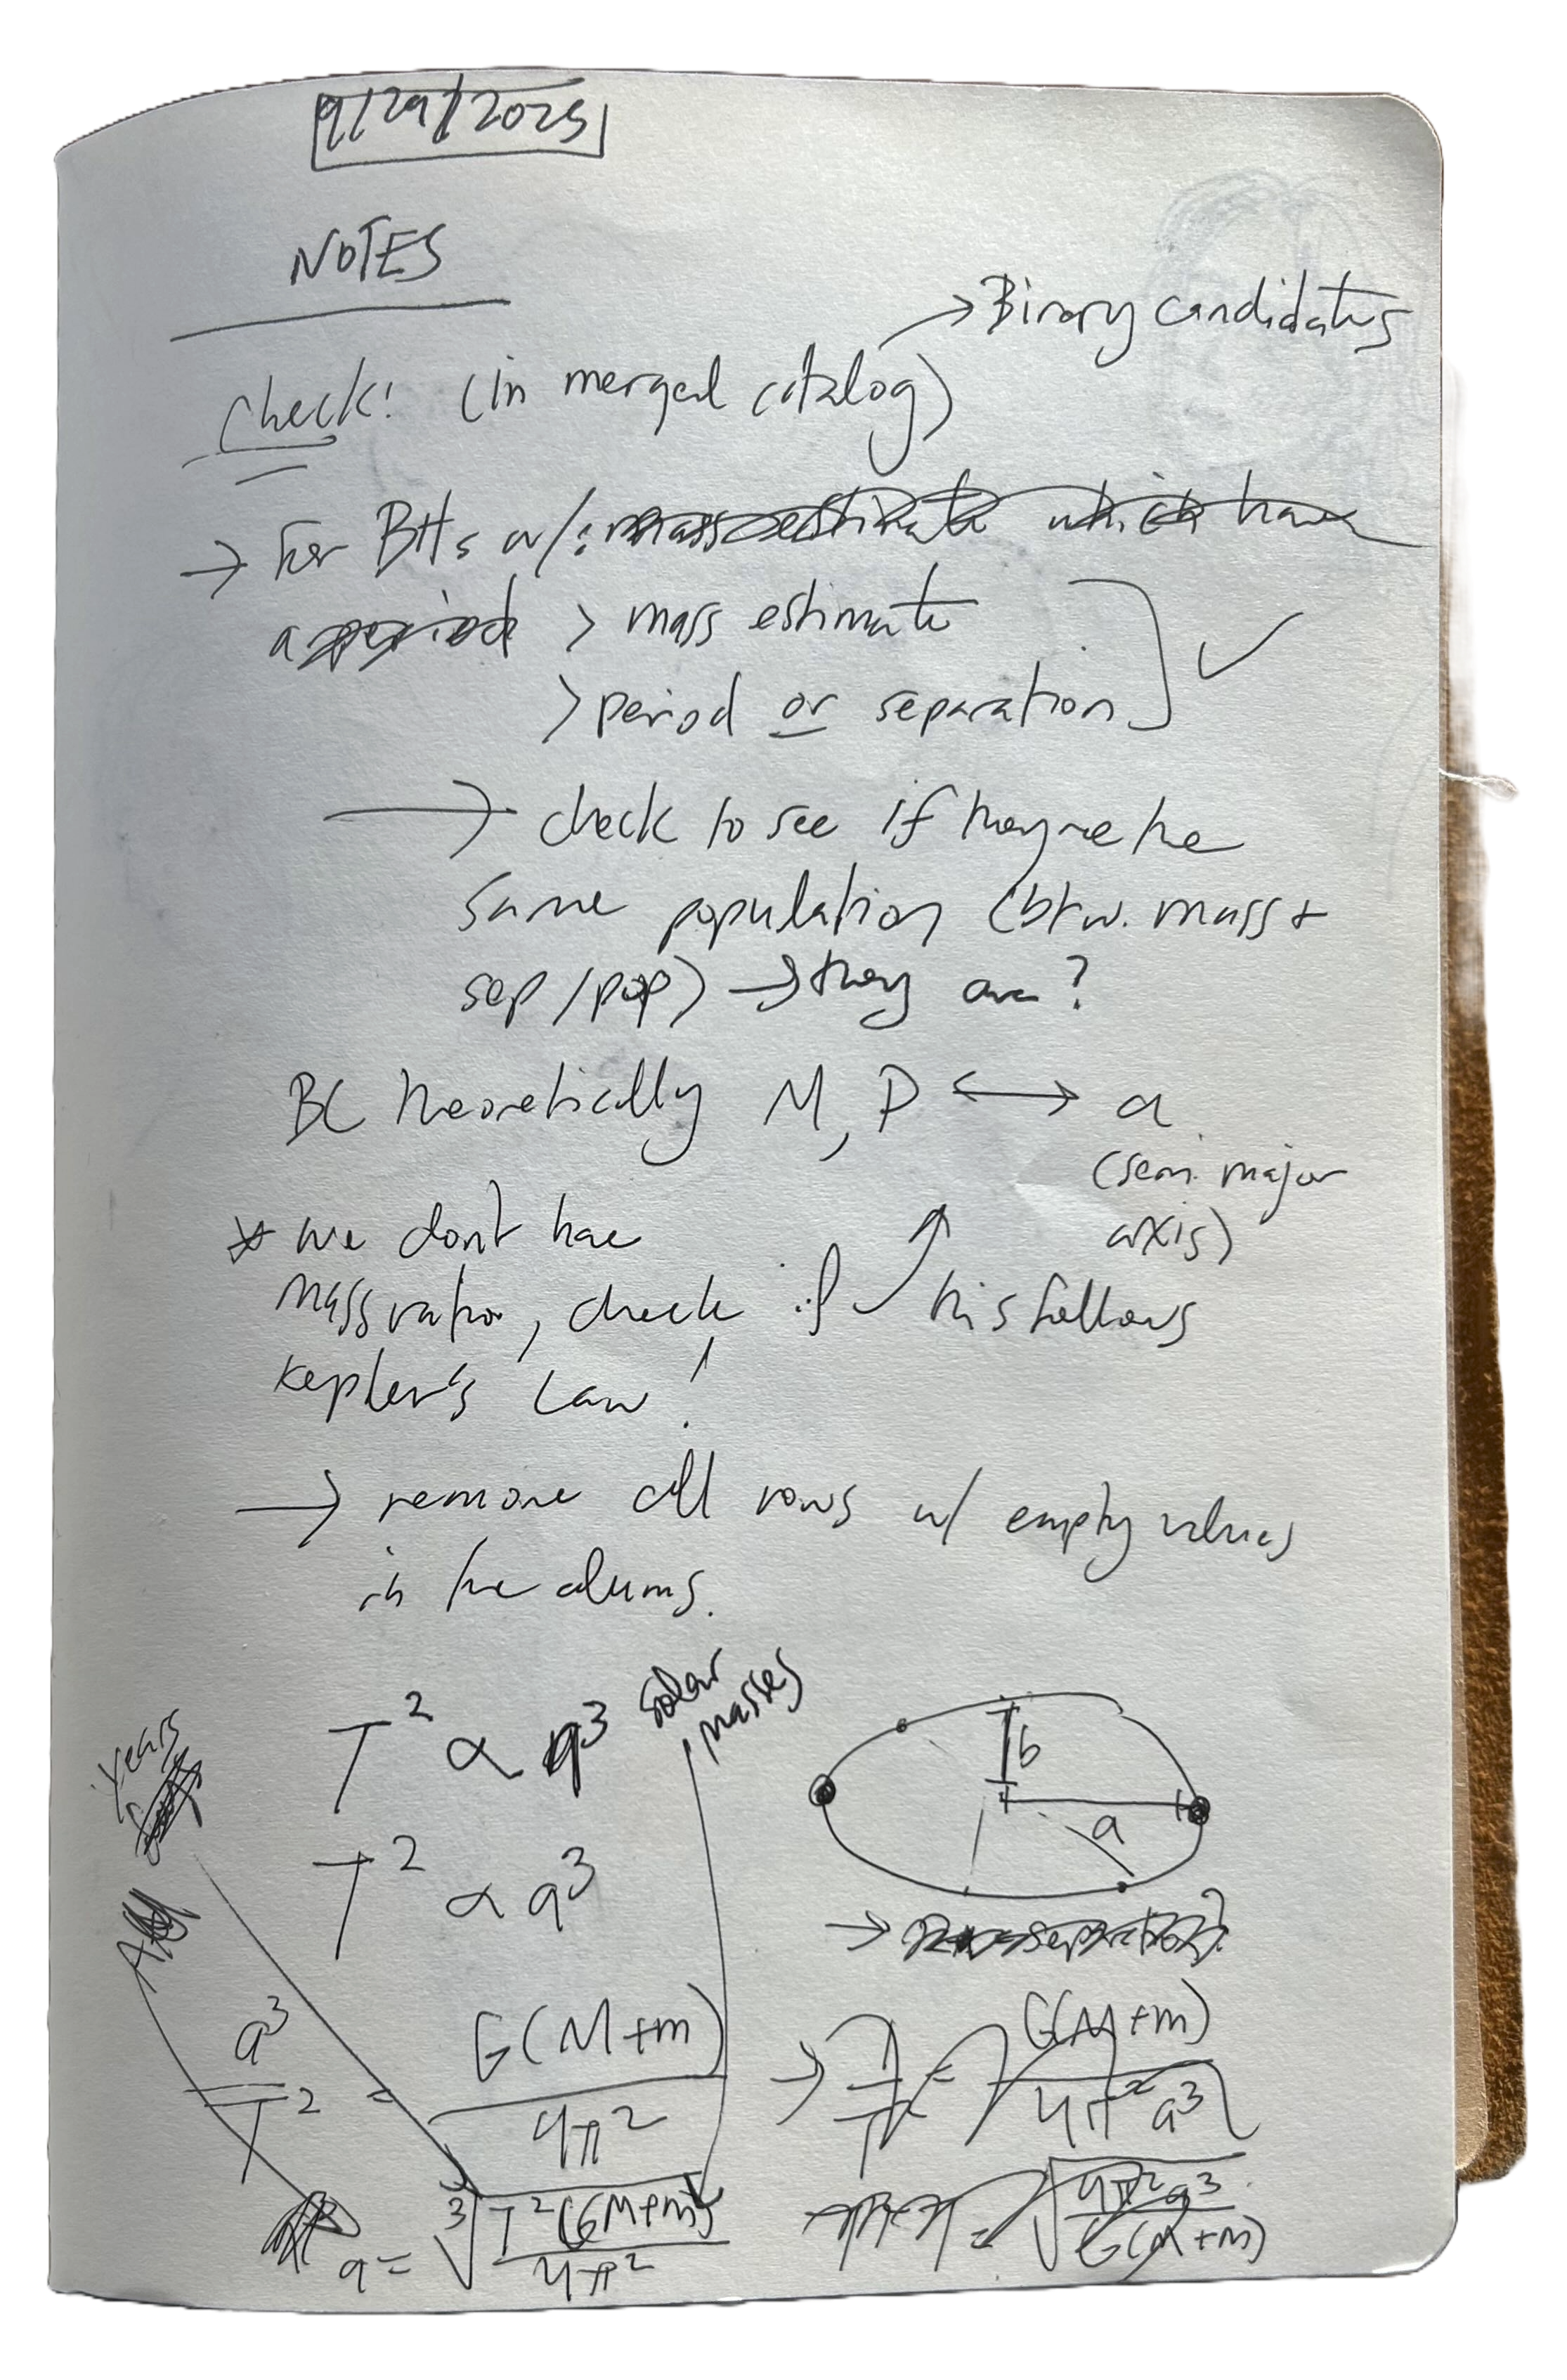 9/29/2025
NOTES
→ Binary candidates
Check! (in merged catalog)
→ For BHs w/: mass estimate which have
a period > mass estimate
> period or separation ✓
→ check to see if they're the
same population (btw. mass +
sep/pop) → they are?
BC theoretically M, P ↔ a
(semi major
axis)
* we dont have
mass ratio, check if this follows
Kepler's Law!
→ remove all rows w/ empty values
in the colums.
T² ∝ a³
solar
masses
years
b
a
T² ∝ a³
a³/T² = G(M+m)/4π²
a = ∛(T²(GM+m)/4π²)